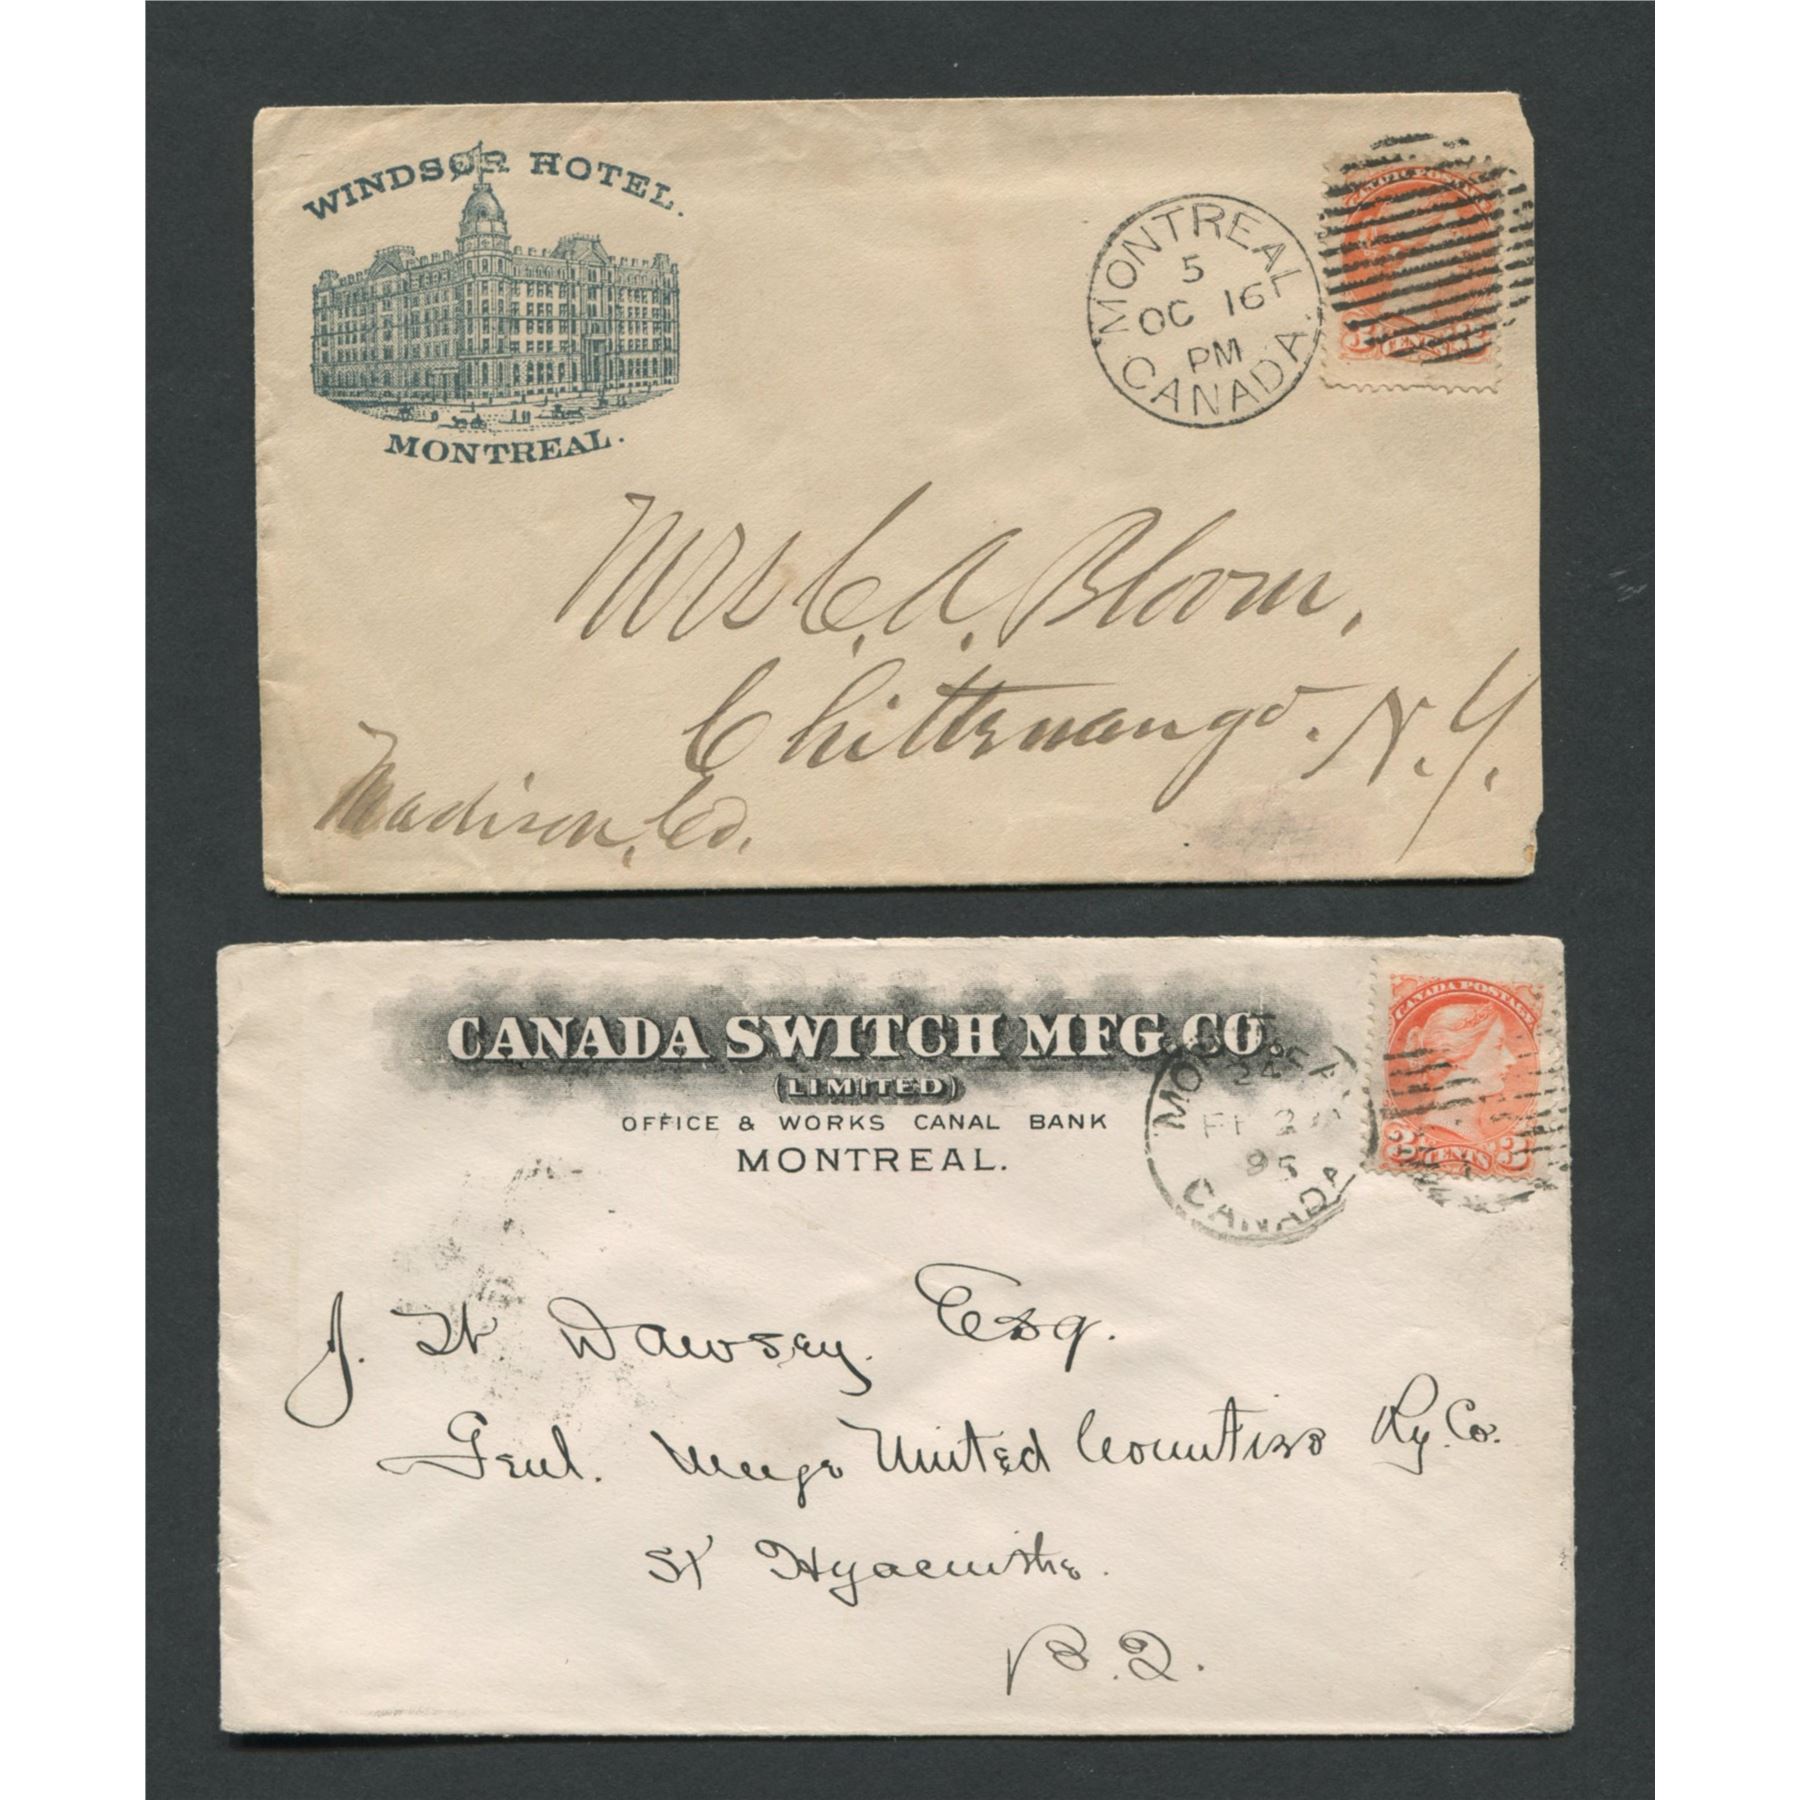 WINDSOR HOTEL.
MONTREAL.
MONTREAL
5
OC 16
PM
CANADA.
3 CENTS 3
Mrs C. A. Bloom,
Chittenango. N. Y.
Madison, Co.
CANADA SWITCH MFG. CO.
(LIMITED)
OFFICE & WORKS CANAL BANK
MONTREAL.
95
CANADA
CANADA POSTAGE
3 CENTS 3
J. W Dawsey. Esq.
Genl. United Counties Ry. Co.
St Hyacinthe.
P. Q.